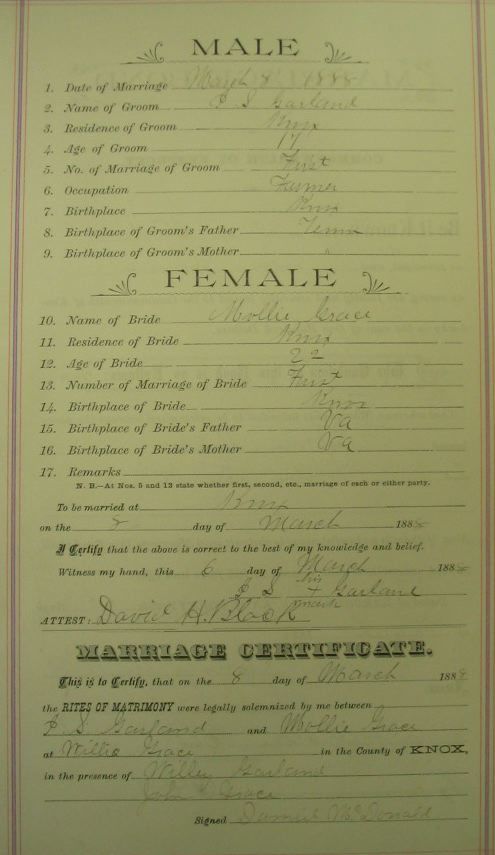 MALE
1. Date of Marriage March 8 1888
2. Name of Groom P S Garland
3. Residence of Groom Knox
4. Age of Groom 17
5. No. of Marriage of Groom First
6. Occupation Farmer
7. Birthplace Knox
8. Birthplace of Groom's Father Tenn
9. Birthplace of Groom's Mother "
FEMALE
10. Name of Bride Mollie Grace
11. Residence of Bride Knox
12. Age of Bride 22
13. Number of Marriage of Bride First
14. Birthplace of Bride Knox
15. Birthplace of Bride's Father Va
16. Birthplace of Bride's Mother Va
17. Remarks
N. B.—At Nos. 5 and 13 state whether first, second, etc., marriage of each or either party.
To be married at Knox
on the 8 day of March 1888
I Certify that the above is correct to the best of my knowledge and belief.
Witness my hand, this 6 day of March 1888
P S his + mark Garland
ATTEST: David H. Black
MARRIAGE CERTIFICATE.
This is to Certify, that on the 8 day of March 1888
the RITES OF MATRIMONY were legally solemnized by me between
P S Garland and Mollie Grace
at Willie Grace in the County of KNOX,
in the presence of Willey Garland
John Grace
Signed Daniel McDonald